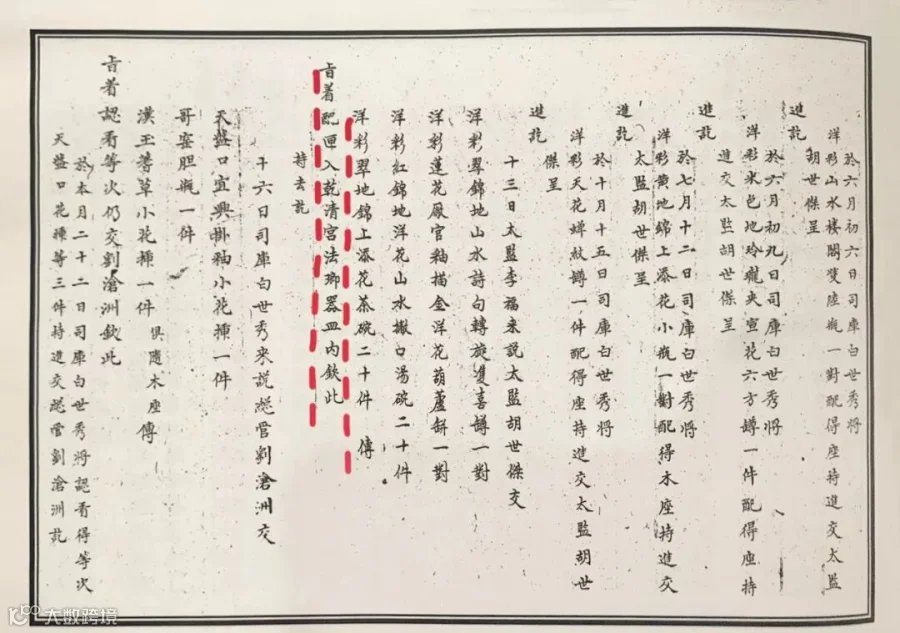 於六月初六日司庫白世秀將
洋彩山水樓閣雙陸瓶一對配得座持進交太監
胡世傑呈
進訖
於六月初九日司庫白世秀將
洋彩米色地玲瓏夾宣花六方罇一件配得座持
進交太監胡世傑呈
進訖
於七月十二日司庫白世秀將
洋彩黄地錦上添花小瓶一對配得木座持進交
太監胡世傑呈
進訖
於十月十五日司庫白世秀將
洋彩天花蟬紋罇一件配得座持進交太監胡世
傑呈
進訖
十三日太監李福來說太監胡世傑交
洋彩翠錦地山水詩句轉旋雙喜罇一對
洋彩蓮花廠官釉描金洋花葫蘆缾一對
洋彩紅錦地洋花山水撇口湯碗二十件
洋彩翠地錦上添花茶碗二十件 傳
旨着配匣入乾清宫法瑯器皿内欽此
持去訖
十六日司庫白世秀來說總管劉滄洲交
天盤口宜興掛釉小花揷一件
哥窑胆瓶一件
漢玉蓍草小花揷一件 俱隨木座傳
旨着認看等次仍交劉滄洲欽此
於本月二十二日司庫白世秀將認看得等次
天盤口花揷等三件持進交總管劉滄洲訖
大數跨境